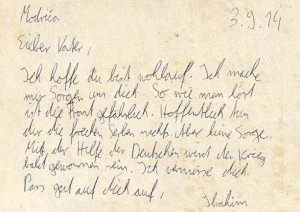 Modriča
3.9.14
Lieber Vater,
Ich hoffe du bist wohlauf. Ich mache
mir Sorgen um dich. So wie man hört
ist die Front gefährlich. Hoffentlich
dir die frechen Serben nicht. Aber keine Sorge.
Mit der Hilfe der Deutschen wird der Krieg
bald gewonnen sein. Ich vermisse dich.
Pass gut auf dich auf,
Ibrahim